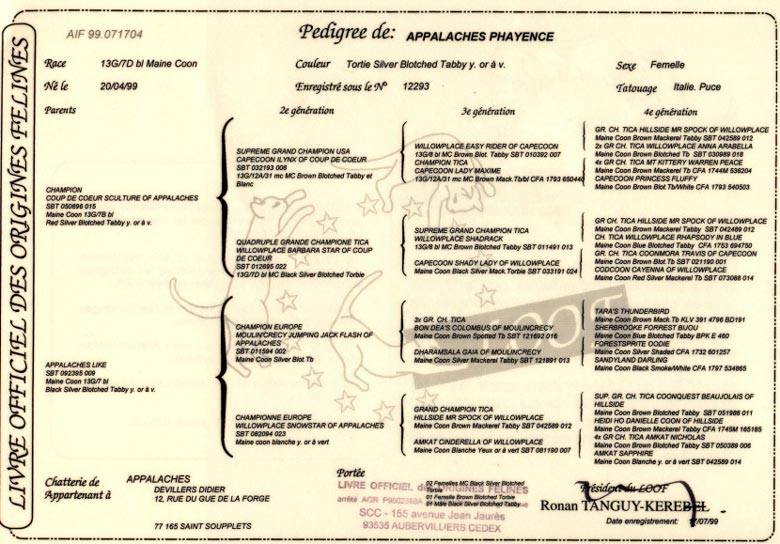 LIVRE OFFICIEL DES ORIGINES FELINES
AIF 99.071704
Pedigree de: APPALACHES PHAYENCE
Race 13G/7D bl Maine Coon
Couleur Tortie Silver Blotched Tabby y. or à v.
Sexe Femelle
Né le 20/04/99
Enregistré sous le N° 12293
Tatouage Italie. Puce
Parents
2e génération
3e génération
4e génération
CHAMPION
COUP DE COEUR SCULTURE OF APPALACHES
SBT 050896 015
Maine Coon 13G/7B bl
Red Silver Blotched Tabby y. or à v.
APPALACHES LIKE
SBT 092395 009
Maine Coon 13G/7 bl
Black Silver Blotched Tabby y. or à v.
SUPREME GRAND CHAMPION USA
CAPECOON ILYNX OF COUP DE COEUR
SBT 032193 008
13G/12A/31 mc MC Brown Blotched Tabby et
Blanc
QUADRUPLE GRANDE CHAMPIONE TICA
WILLOWPLACE BARBARA STAR OF COUP
DE COEUR
SBT 012695 022
13G/7D bl MC Black Silver Blotched Torbie
CHAMPION EUROPE
MOULIN'CRECY JUMPING JACK FLASH OF
APPALACHES
SBT 011594 002
Maine Coon Silver Blot.Tb
CHAMPIONNE EUROPE
WILLOWPLACE SNOWSTAR OF APPALACHES
SBT 082094 023
Maine coon blanche y. or à vert
WILLOWPLACE EASY RIDER OF CAPECOON
13G/8 bl MC Brown Blot. Tabby SBT 010392 007
CHAMPION TICA
CAPECOON LADY MAXIME
13G/12A/31 mc MC Brown Mack.Tb/bl CFA 1793 650440
SUPREME GRAND CHAMPION TICA
WILLOWPLACE SHADRACK
13G/8 bl MC Brown Blotched Tabby SBT 011491 013
CAPECOON SHADY LADY OF WILLOWPLACE
Maine Coon Black Silver Mack.Torbie SBT 033191 024
3x GR. CH. TICA
BON DEA'S COLOMBUS OF MOULINCRECY
Maine Coon Brown Spotted Tb SBT 121692 016
DHARAMSALA GAIA OF MOULINCRECY
Maine Coon Silver Mackerel Tabby SBT 121891 013
GRAND CHAMPION TICA
HILLSIDE MR SPOCK OF WILLOWPLACE
Maine Coon Brown Mackerel Tabby SBT 042589 012
AMKAT CINDERELLA OF WILLOWPLACE
Maine Coon Blanche Yeux or à vert SBT 081190 007
GR. CH. TICA HILLSIDE MR SPOCK OF WILLOWPLACE
Maine Coon Brown Mackerel Tabby SBT 042589 012
2x GR CH. TICA WILLOWPLACE ANNA ARABELLA
Maine Coon Brown Blotched Tb SBT 030989 018
4x GR CH. TICA MT KITTERY WARREN PEACE
Maine Coon Brown Mackerel Tb CFA 1744M 536204
CAPECOON PRINCESS FLUFFY
Maine Coon Brown Blot.Tb/White CFA 1793 540503
GR. CH. TICA HILLSIDE MR SPOCK OF WILLOWPLACE
Maine Coon Brown Mackerel Tabby SBT 042489 012
CH. TICA WILLOWPLACE RHAPSODY IN BLUE
Maine Coon Blue Blotched Tabby CFA 1753 694750
GR. CH. TICA COONMORA TRAVIS OF CAPECOON
Maine Coon Brown Blotched Tb SBT 021190 001
CODCOON CAYENNA OF WILLOWPLACE
Maine Coon Red Silver Mackerel Tb SBT 073088 014
TARA'S THUNDERBIRD
Maine Coon Brown Mack.Tb KLV 391 4796 BD191
SHERBROOKE FORREST BIJOU
Maine Coon Blue Blotched Tabby BPK E 460
FORESTSPRITE OODIE
Maine Coon Silver Shaded CFA 1732 601257
SANDYLAND DARLING
Maine Coon Black Smoke/White CFA 1797 534865
SUP. GR. CH. TICA COONQUEST BEAUJOLAIS OF
HILLSIDE
Maine Coon Brown Blotched Tabby SBT 051986 011
HEIDI HO DANIELLE COON OF HILLSIDE
Maine Coon Brown Mackerel Tabby CFA 1745M 165185
4x GR. CH. TICA AMKAT NICHOLAS
Maine Coon Brown Blotched Tabby SBT 050389 006
AMKAT SAPPHIRE
Maine Coon Blanche y. or à vert SBT 042589 014
LOOF
Chatterie de APPALACHES
Appartenant à DEVILLERS DIDIER
12, RUE DU GUE DE LA FORGE
77 165 SAINT SOUPPLETS
Portée
02 Femelles MC Black Silver Blotched
Torbie
01 Femelle Brown Blotched Torbie
01 Mâle Black Silver Blotched Tabby
LIVRE OFFICIEL des ORIGINES FELINES
arrêté AGR
SCC - 155 avenue Jean Jaurès
93535 AUBERVILLIERS CEDEX
Président du LOOF
Ronan TANGUY-KEREBEL
Date enregistrement: /07/99